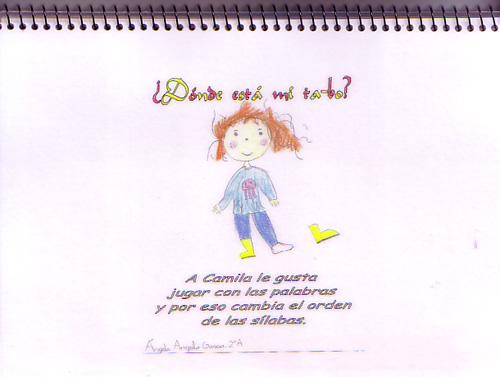 ¿Dónde está mi ta-bo?
A Camila le gusta
jugar con las palabras
y por eso cambia el orden
de las sílabas.
Ángela 2ºA